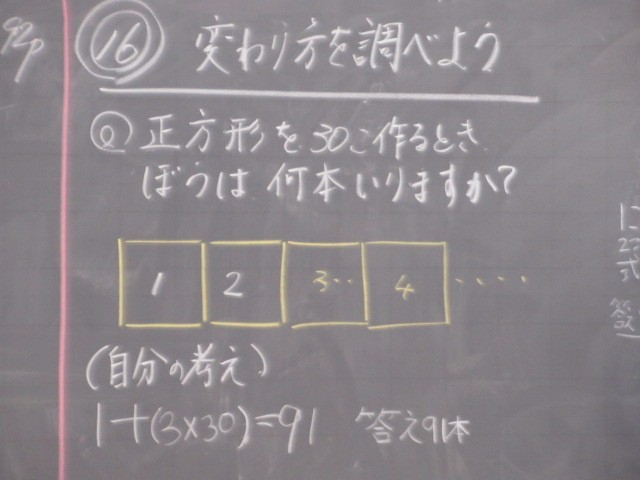 92p
⑯ 変わり方を調べよう
@ 正方形を30こ作るとき
ぼうは 何本いりますか?
1 2 3‥ 4 ‥‥
(自分の考え)
1+(3×30)=91 答え91本
式
答え